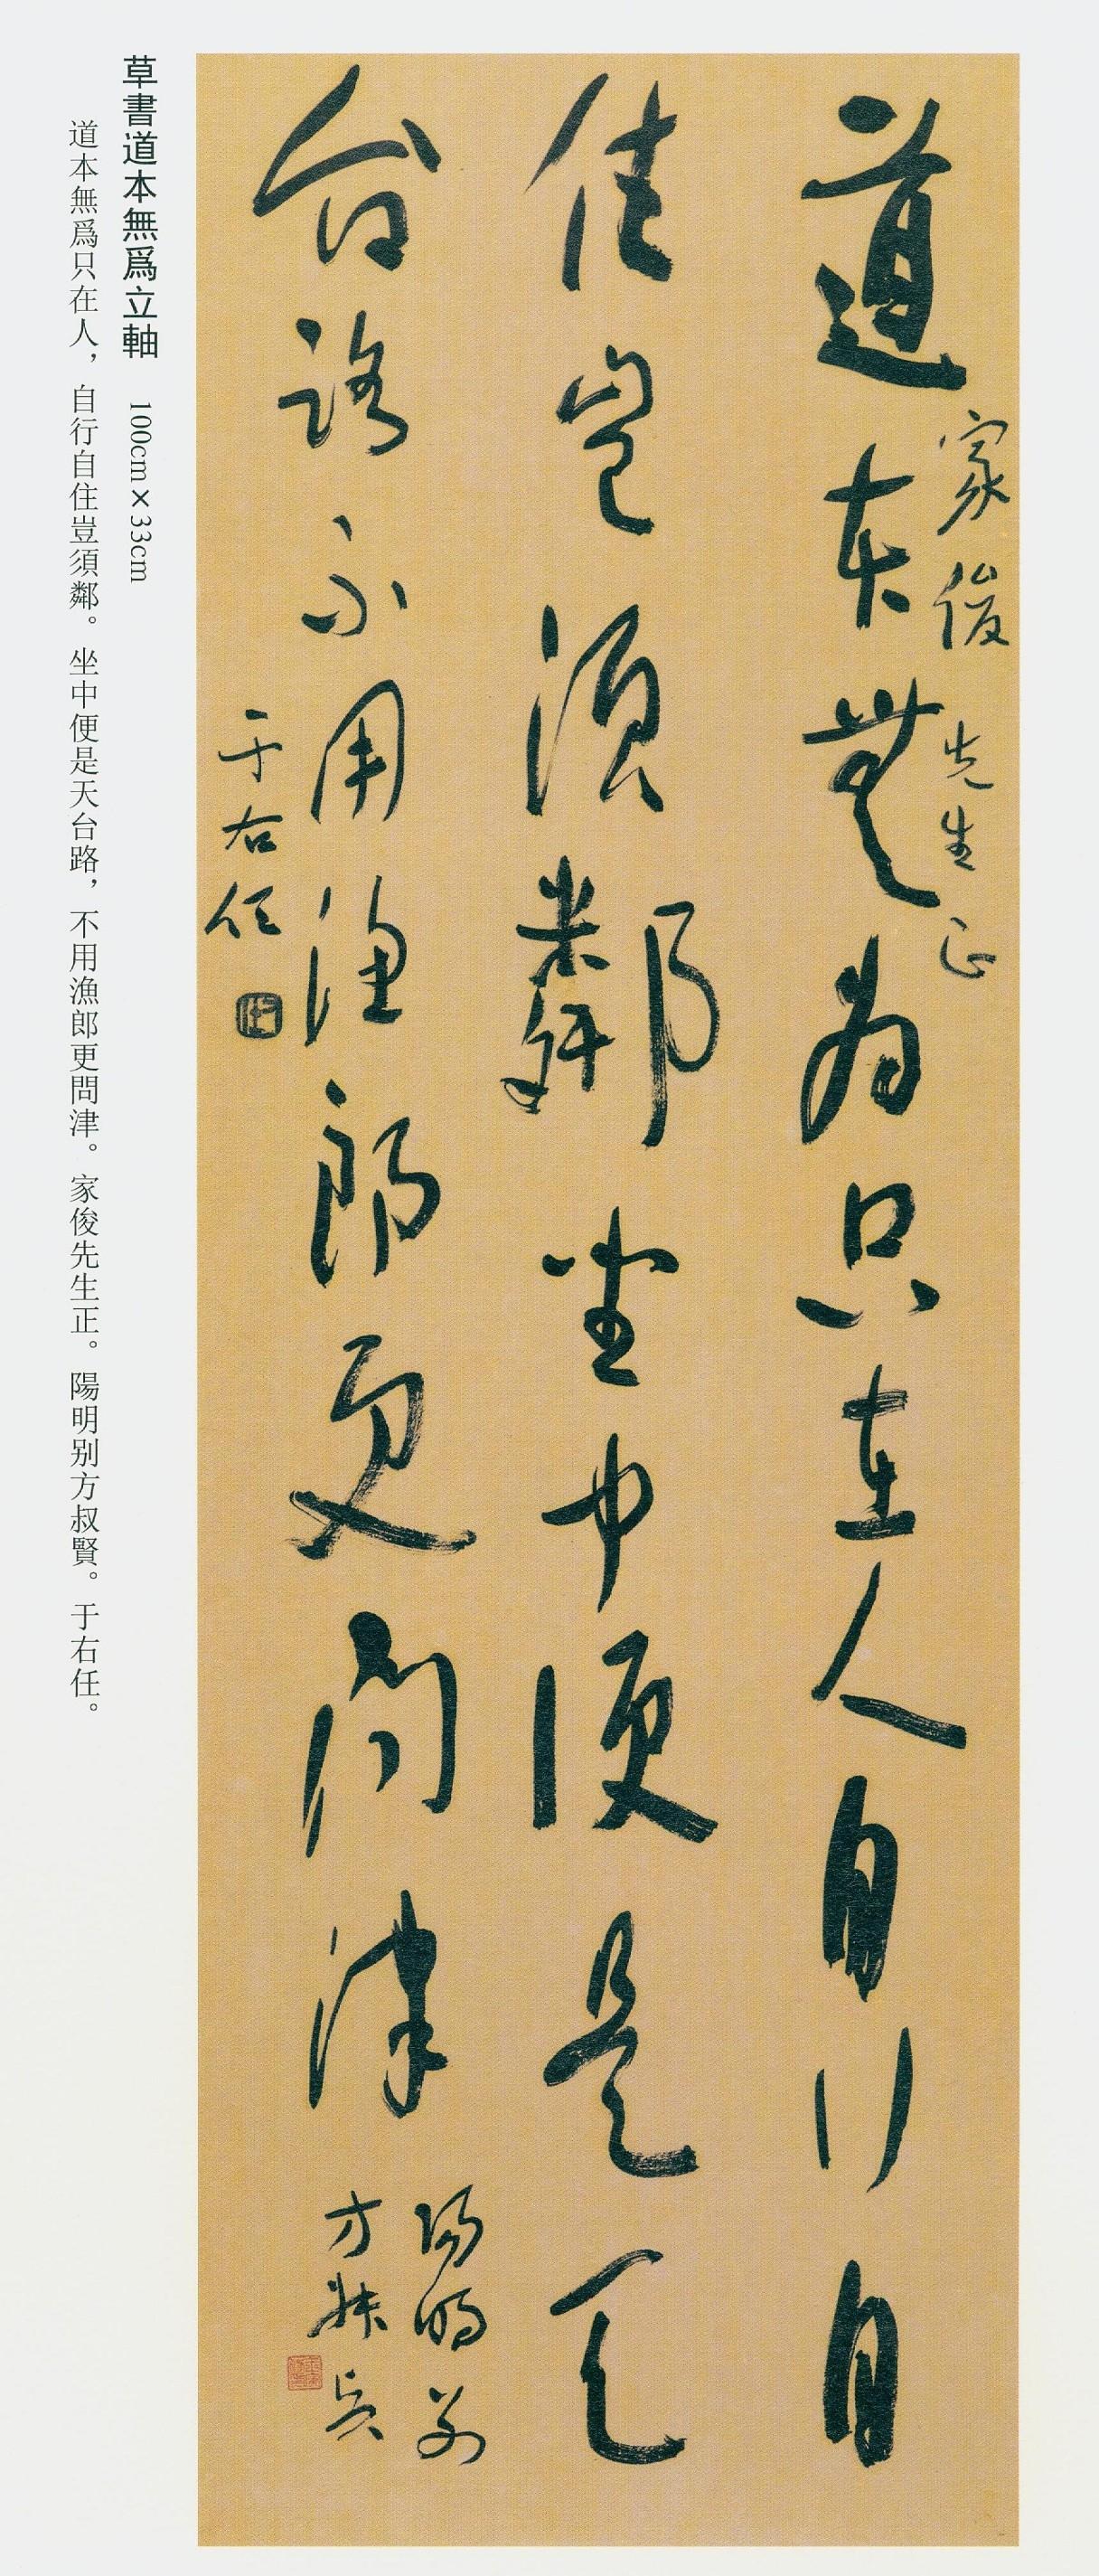 道本無為只在人自行自
住豈須鄰坐中便是天
台路不用漁郎更問津
家俊先生正
陽明別
方叔賢
于右任
草書道本無爲立軸 100cm×33cm
道本無爲只在人，自行自住豈須鄰。坐中便是天台路，不用漁郎更問津。家俊先生正。陽明别方叔賢。于右任。